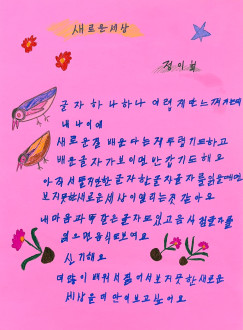 새로운세상
정이희
글자하나하나 어렵게만느껴지던
내 나이에
새로운걸 배운다는게 두렵기도하고
배운글자가보이면반갑기도해요
아직서툴지만글자한글자글자를읽을때면
보지못한새로운세상이열리는것같아요
내마음과똑같은글자도있고음식글자를
읽으면음식도보여요
신기해요
더많이배워서줄어서보지못한새로운
세상을더만이보고싶어요